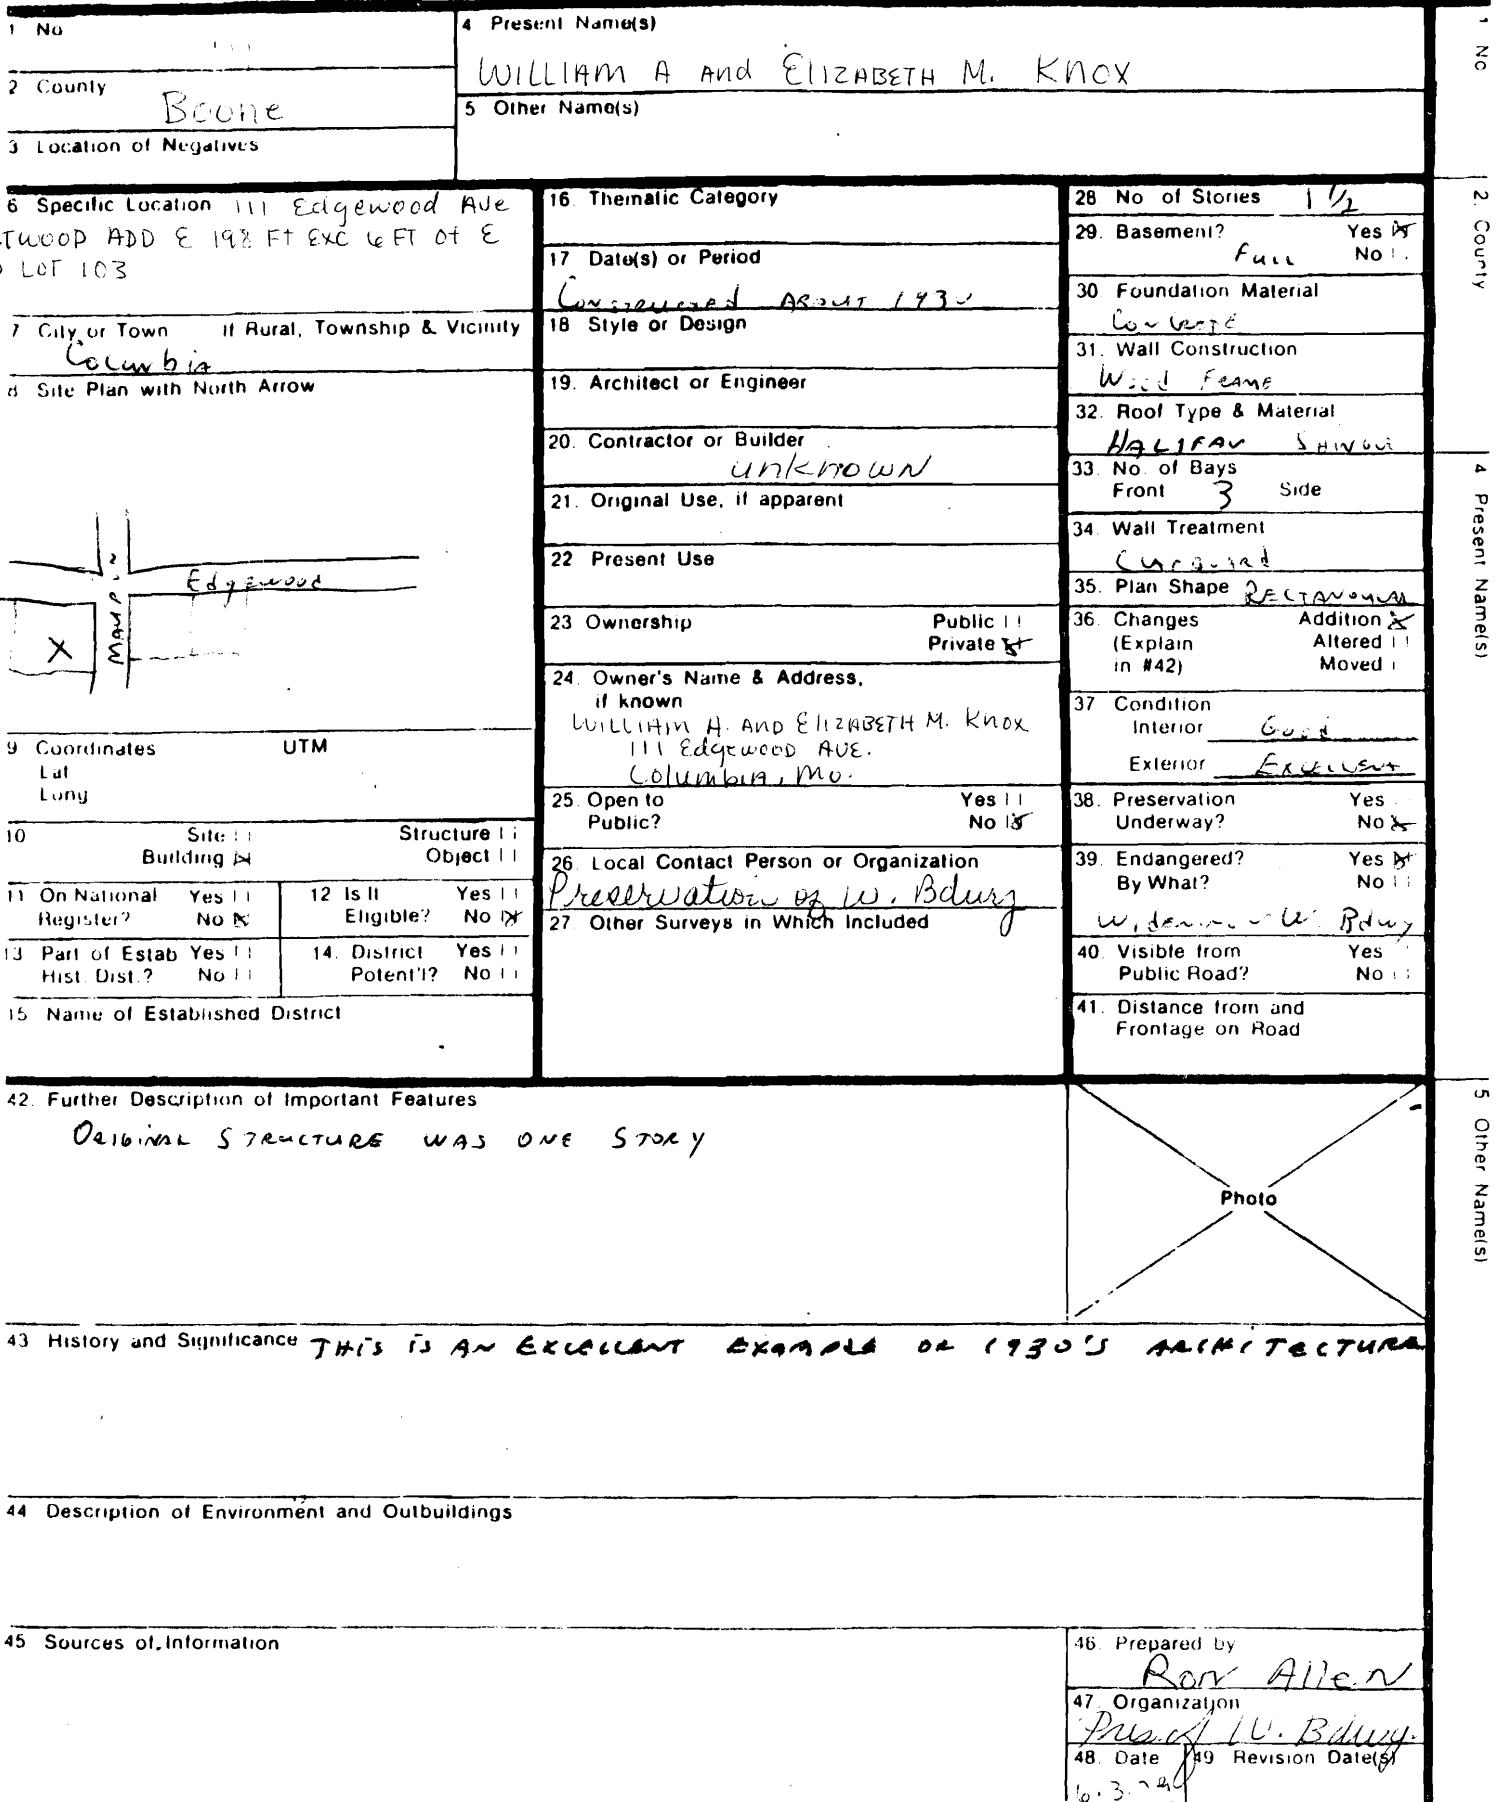 1 No
4 Present Name(s)
WILLIAM A AND ELIZABETH M. KNOX
2 County
Boone
5 Other Name(s)
3 Location of Negatives
6 Specific Location 111 Edgewood Ave
TWOOD ADD E 198 FT EXC 6 FT Of E
LOT 103
7 City or Town If Rural, Township & Vicinity
Columbia
8 Site Plan with North Arrow
Edgewood
X
9 Coordinates UTM
Lat
Long
10 Site
Structure
Building
Object
11 On National Register? Yes No
12 Is It Eligible? Yes No
13 Part of Estab Hist. Dist.? Yes No
14. District Potent'l? Yes No
15 Name of Established District
16. Thematic Category
17 Date(s) or Period
Constructed ABOUT 1930
18 Style or Design
19. Architect or Engineer
20. Contractor or Builder
unknown
21. Original Use, if apparent
22 Present Use
23 Ownership Public
Private
24. Owner's Name & Address,
if known
WILLIAM A. AND ELIZABETH M. KNOX
111 Edgewood AVE.
Columbia, Mo.
25. Open to Public? Yes No
26. Local Contact Person or Organization
Preservation of W. Bdwy
27 Other Surveys in Which Included
28 No of Stories 1 1/2
29. Basement? Yes
Full No
30 Foundation Material
Concrete
31. Wall Construction
Wood FRAME
32. Roof Type & Material
SHINGLE
33. No. of Bays
Front 3 Side
34. Wall Treatment
35. Plan Shape RECTANGULAR
36. Changes Addition
(Explain Altered
in #42) Moved
37 Condition
Interior Good
Exterior EXCELLENT
38. Preservation Yes
Underway? No
39. Endangered? Yes
By What? No
Widening W. Bdwy
40. Visible from Yes
Public Road? No
41. Distance from and
Frontage on Road
42. Further Description of Important Features
ORIGINAL STRUCTURE WAS ONE STORY
Photo
43 History and Significance THIS IS AN EXCELLENT EXAMPLE OF 1930'S ARCHITECTURE
44 Description of Environment and Outbuildings
45 Sources of Information
46. Prepared by
Ron Allen
47. Organization
Pres. of W. Bdwy.
48. Date 49 Revision Date(s)
1 No
2. County
4 Present Name(s)
5 Other Name(s)